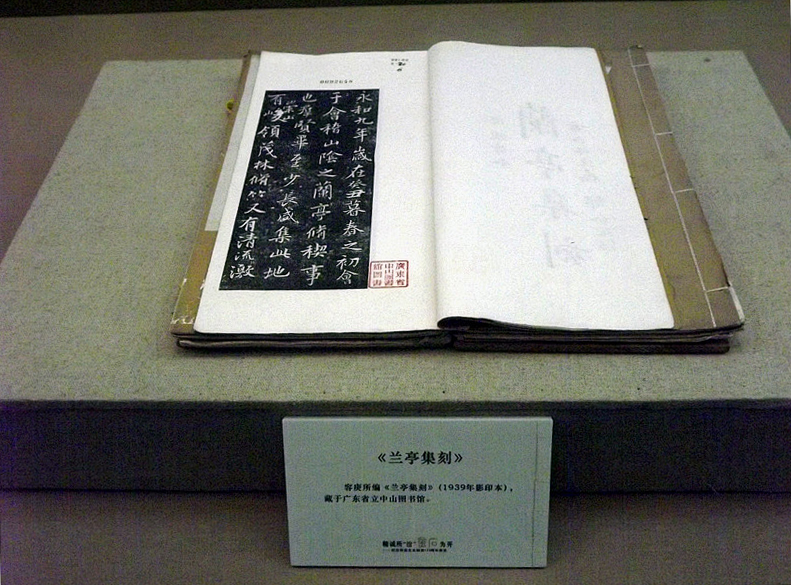 永和九年歲在癸丑暮春之初會
于會稽山陰之蘭亭脩稧事
也群賢畢至少長咸集此地
有崇山峻領茂林脩竹又有清流激
廣東省
中山圖書
館圖書
蘭亭集刻
《兰亭集刻》
容庚所编《兰亭集刻》(1939年影印本),
藏于广东省立中山图书馆。
精诚所"注" 金石 为开